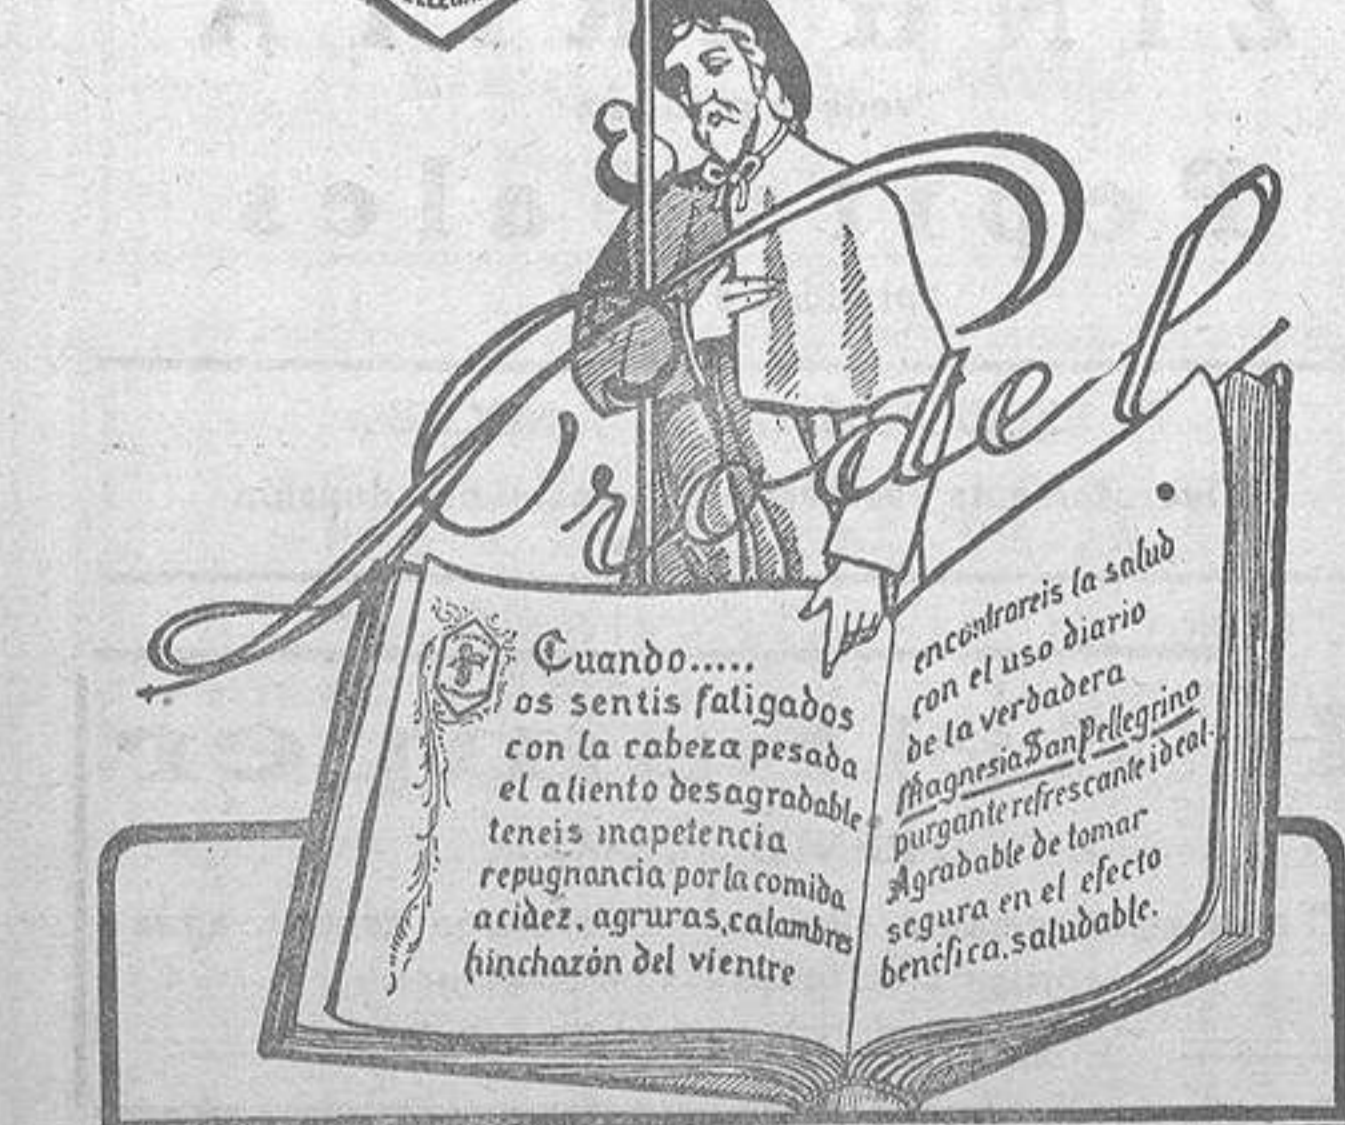 Prodel
Cuando.....
os sentis fatigados
con la cabeza pesada
el aliento desagradable
teneis inapetencia
repugnancia por la comida
acidez, agruras, calambres
hinchazón del vientre
encontrareis la salud
con el uso diario
de la verdadera
Magnesia San Pellegrino
purgante refrescante ideal.
Agradable de tomar
segura en el efecto
benéfica, saludable.